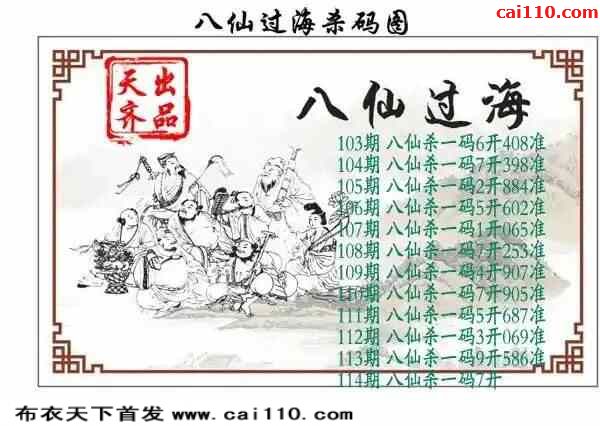 八仙过海杀码图
cai110.com
天齐
出品
八仙过海
103期 八仙杀一码6开408准
104期 八仙杀一码7开398准
105期 八仙杀一码2开884准
106期 八仙杀一码5开602准
107期 八仙杀一码1开065准
108期 八仙杀一码7开253准
109期 八仙杀一码4开907准
110期 八仙杀一码7开905准
111期 八仙杀一码5开687准
112期 八仙杀一码3开069准
113期 八仙杀一码9开586准
114期 八仙杀一码7开
布衣天下首发 www.cai110.com